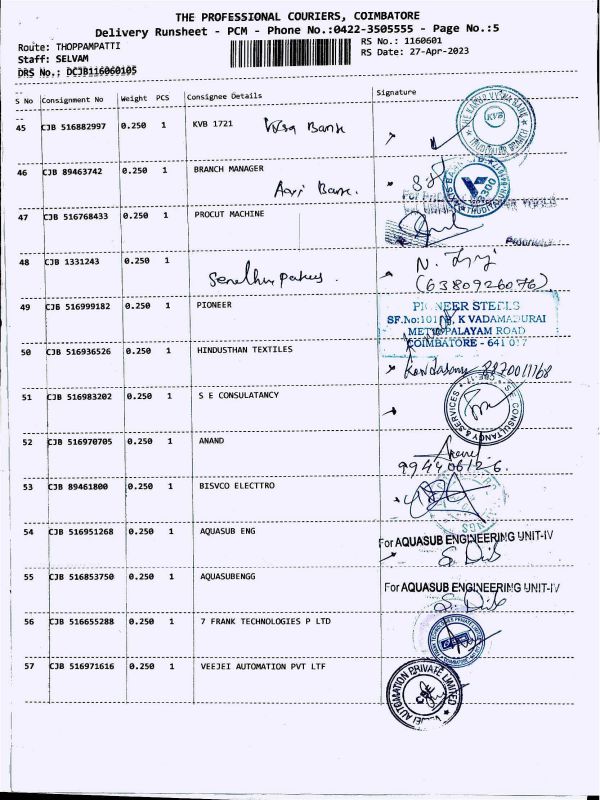 THE PROFESSIONAL COURIERS, COIMBATORE
Delivery Runsheet - PCM - Phone No.:0422-3505555 - Page No.:5
Route: THOPPAMPATTI RS No.: 1160601
Staff: SELVAM RS Date: 27-Apr-2023
DRS No.: DCJB116060105
S No Consignment No Weight PCS Consignee Details Signature
45 CJB 516882997 0.250 1 KVB 1721 Bank
46 CJB 89463742 0.250 1 BRANCH MANAGER
Bank.
47 CJB 516768433 0.250 1 PROCUT MACHINE
48 CJB 1331243 0.250 1
(6380926076)
49 CJB 516999182 0.250 1 PIONEER PIONEER STEELS
SF.No:101 K VADAMADURAI
METTUPALAYAM ROAD
COIMBATORE - 641 017
50 CJB 516936526 0.250 1 HINDUSTHAN TEXTILES
51 CJB 516983202 0.250 1 S E CONSULATANCY S.E. CONSULTANCY & SERVICES
52 CJB 516970705 0.250 1 ANAND
53 CJB 89461800 0.250 1 BISVCO ELECTTRO
54 CJB 516951268 0.250 1 AQUASUB ENG For AQUASUB ENGINEERING UNIT-IV
55 CJB 516853750 0.250 1 AQUASUBENGG For AQUASUB ENGINEERING UNIT-IV
56 CJB 516655288 0.250 1 7 FRANK TECHNOLOGIES P LTD
57 CJB 516971616 0.250 1 VEEJEI AUTOMATION PVT LTF VEEJEI AUTOMATION PRIVATE LIMITED